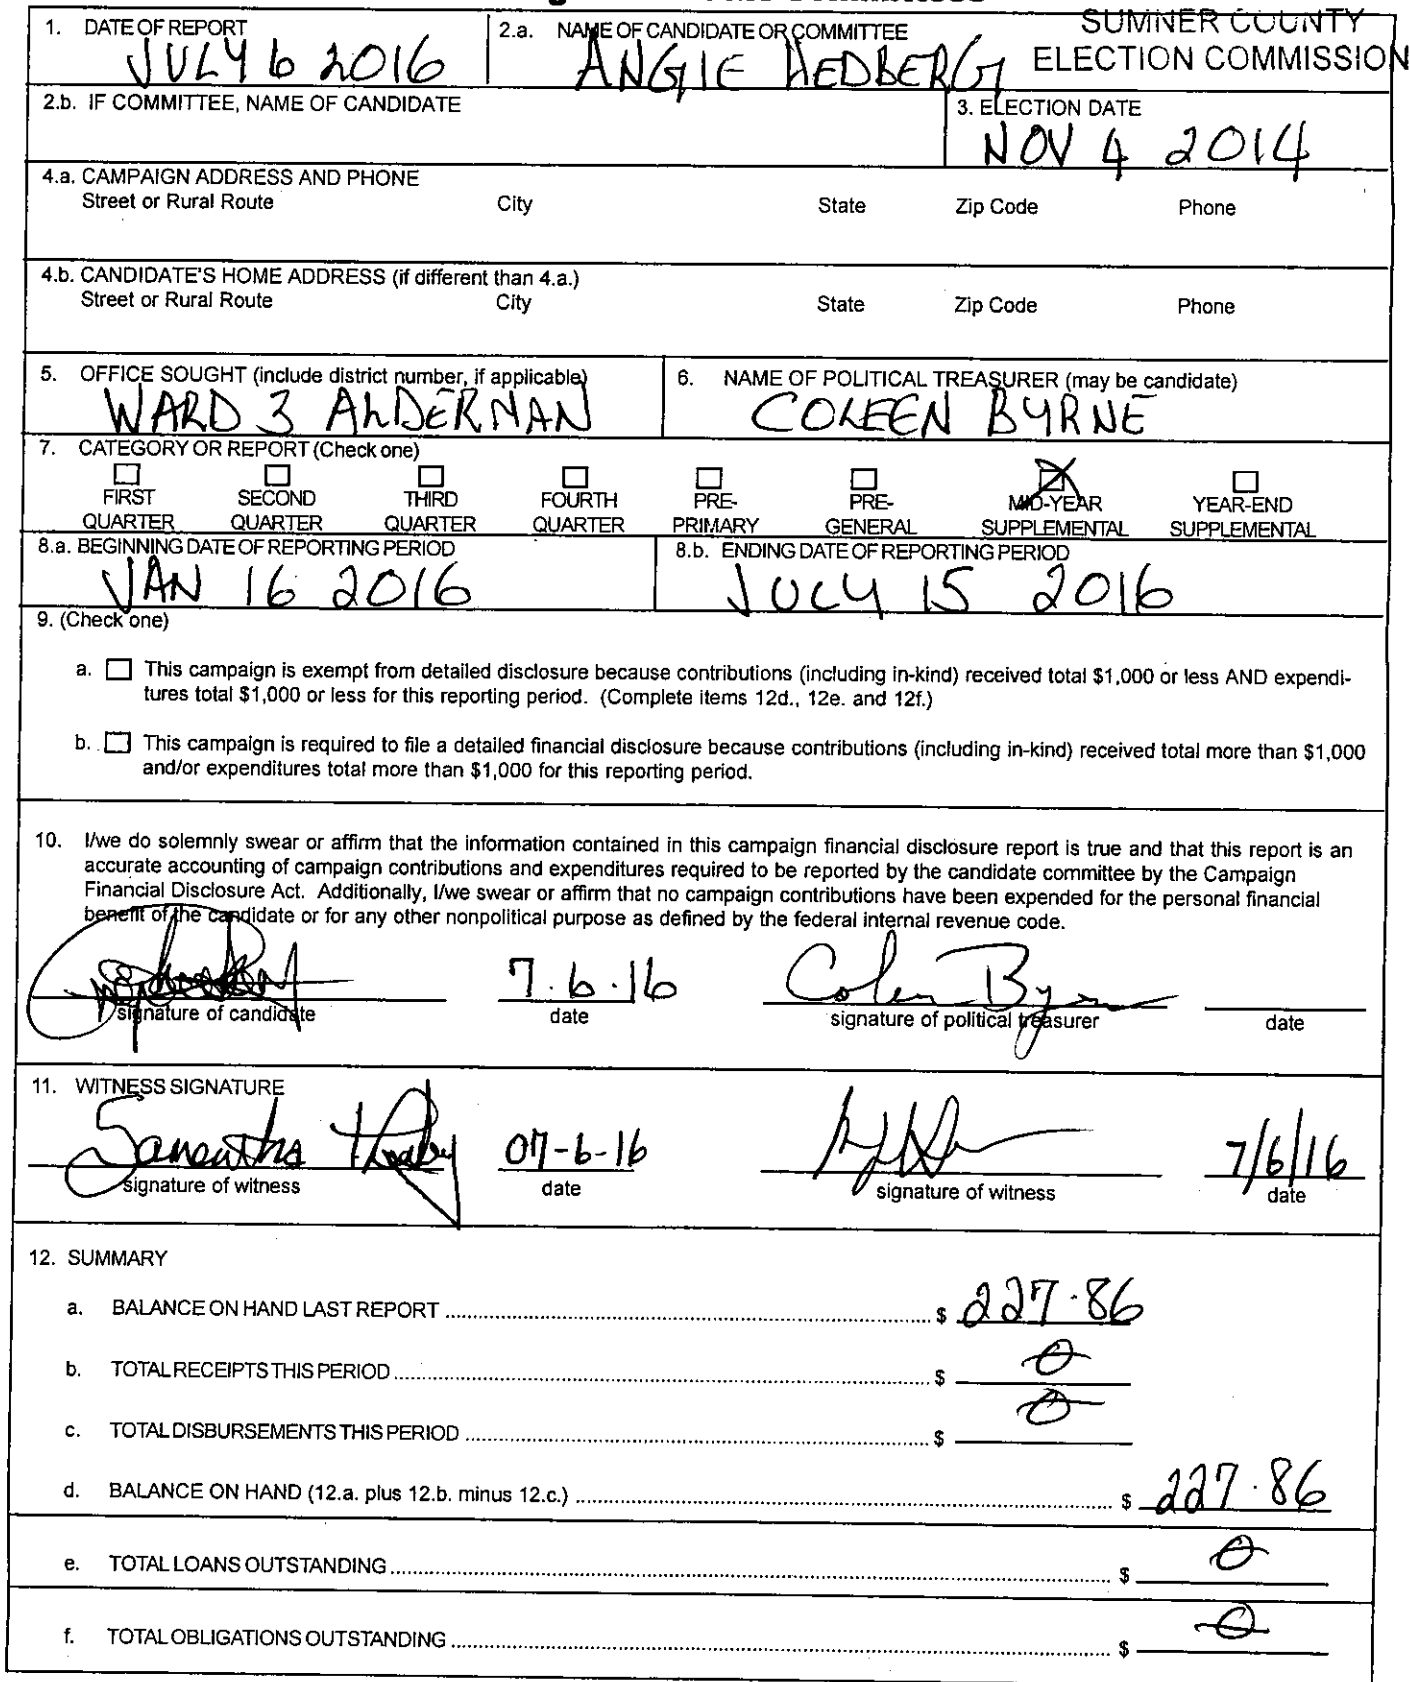 SUMNER COUNTY
ELECTION COMMISSION
1. DATE OF REPORT
JULY 6 2016
2.a. NAME OF CANDIDATE OR COMMITTEE
ANGIE HEDBERG
2.b. IF COMMITTEE, NAME OF CANDIDATE
3. ELECTION DATE
NOV 4 2014
4.a. CAMPAIGN ADDRESS AND PHONE
Street or Rural Route City State Zip Code Phone
4.b. CANDIDATE'S HOME ADDRESS (if different than 4.a.)
Street or Rural Route City State Zip Code Phone
5. OFFICE SOUGHT (include district number, if applicable)
WARD 3 ALDERMAN
6. NAME OF POLITICAL TREASURER (may be candidate)
COLEEN BYRNE
7. CATEGORY OR REPORT (Check one)
FIRST QUARTER
SECOND QUARTER
THIRD QUARTER
FOURTH QUARTER
PRE-PRIMARY
PRE-GENERAL
MID-YEAR SUPPLEMENTAL
YEAR-END SUPPLEMENTAL
8.a. BEGINNING DATE OF REPORTING PERIOD
JAN 16 2016
8.b. ENDING DATE OF REPORTING PERIOD
JULY 15 2016
9. (Check one)
a. This campaign is exempt from detailed disclosure because contributions (including in-kind) received total $1,000 or less AND expendi-
tures total $1,000 or less for this reporting period. (Complete items 12d., 12e. and 12f.)
b. This campaign is required to file a detailed financial disclosure because contributions (including in-kind) received total more than $1,000
and/or expenditures total more than $1,000 for this reporting period.
10. I/we do solemnly swear or affirm that the information contained in this campaign financial disclosure report is true and that this report is an
accurate accounting of campaign contributions and expenditures required to be reported by the candidate committee by the Campaign
Financial Disclosure Act. Additionally, I/we swear or affirm that no campaign contributions have been expended for the personal financial
benefit of the candidate or for any other nonpolitical purpose as defined by the federal internal revenue code.
7.6.16 Coleen Byrne
signature of candidate date signature of political treasurer date
11. WITNESS SIGNATURE
Samantha 07-6-16 7/6/16
signature of witness date signature of witness date
12. SUMMARY
a. BALANCE ON HAND LAST REPORT $ 227.86
b. TOTAL RECEIPTS THIS PERIOD $ 0
c. TOTAL DISBURSEMENTS THIS PERIOD $ 0
d. BALANCE ON HAND (12.a. plus 12.b. minus 12.c.) $ 227.86
e. TOTAL LOANS OUTSTANDING $ 0
f. TOTAL OBLIGATIONS OUTSTANDING $ 0